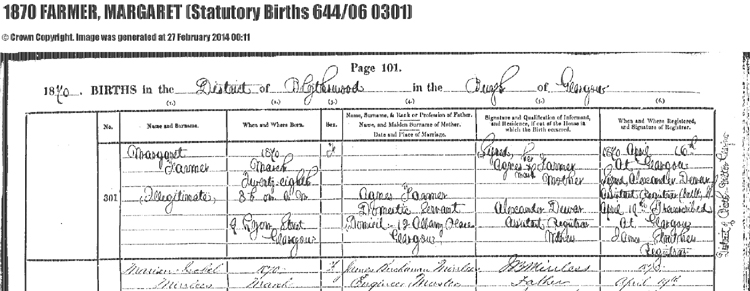 1870 FARMER, MARGARET (Statutory Births 644/06 0301)
© Crown Copyright. Image was generated at 27 February 2014 00:11
Page 101.
1870. BIRTHS in the District of Blythswood in the Burgh of Glasgow
(1.) (2.) (3.) (4.) (5.) (6.)
No. Name and Surname. When and Where Born. Sex. Name, Surname, & Rank or Profession of Father. Name, and Maiden Surname of Mother. Date and Place of Marriage. Signature and Qualification of Informant, and Residence, if out of the House in which the Birth occurred. When and Where Registered, and Signature of Registrar.
301
Margaret
Farmer
(Illegitimate)
1870
March
Twenty-eighth
8h m M
Lyon Street
Glasgow
F
Agnes Farmer
Domestic Servant
Domicil 12 Albany Place
Glasgow
Signed, her
Agnes x Farmer
mark
Mother
Alexander Dewar
Assistant Registrar
Witness
1870 April 16th
At Glasgow
Signed Alexander Dewar
Assistant Registrar
April Transcribed
At Glasgow
James
Registrar
Mirrlees
March
1870.
F
James Buchanan Mirrlees
Engineer Master
Mirrlees
Father
1870.
April 19th